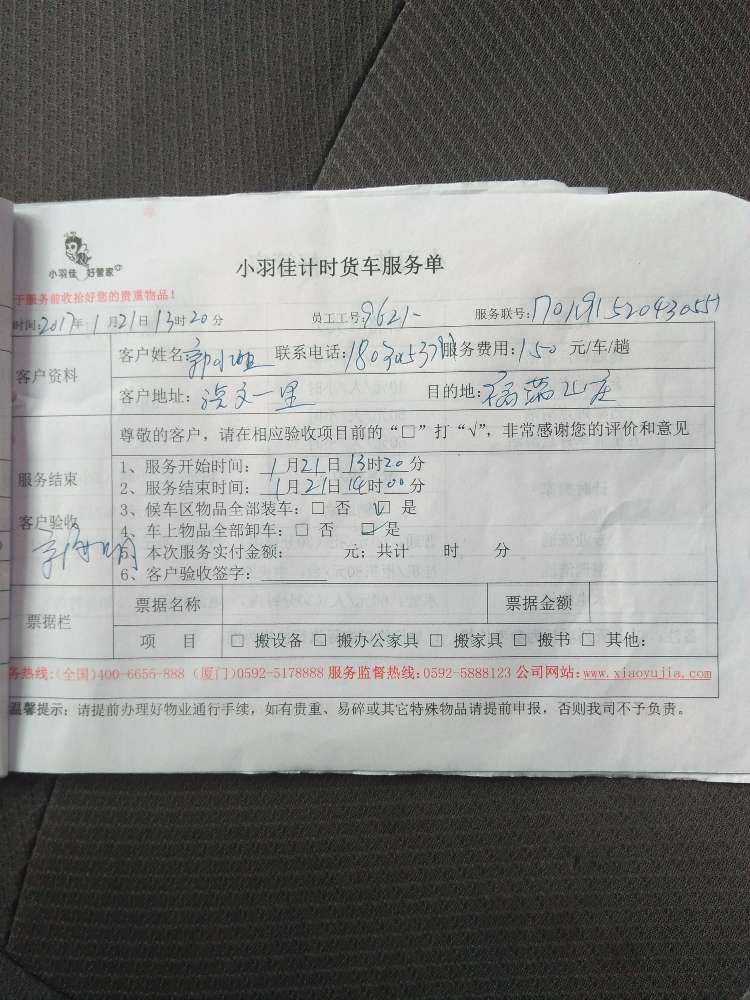 小羽佳 好管家
小羽佳计时货车服务单
于服务前收拾好您的贵重物品！
时间：2017年1月21日13时20分 员工工号：9621 服务联号：
客户资料
客户姓名： 联系电话： 服务费用：150 元/车/趟
客户地址：文一里 目的地：山庄
服务结束
客户验收
尊敬的客户，请在相应验收项目前的“□”打“√”，非常感谢您的评价和意见
1、服务开始时间：1月21日13时20分
2、服务结束时间：1月21日14时00分
3、候车区物品全部装车：□ 否 ☑ 是
4、车上物品全部卸车：□ 否 ☑ 是
本次服务实付金额： 元；共计 时 分
6、客户验收签字：
票据栏
票据名称 票据金额
项 目 □ 搬设备 □ 搬办公家具 □ 搬家具 □ 搬书 □ 其他：
务热线：(全国)400-6655-888 (厦门)0592-5178888 服务监督热线：0592-5888123 公司网站：www.xiaoyujia.com
温馨提示：请提前办理好物业通行手续，如有贵重、易碎或其它特殊物品请提前申报，否则我司不予负责。